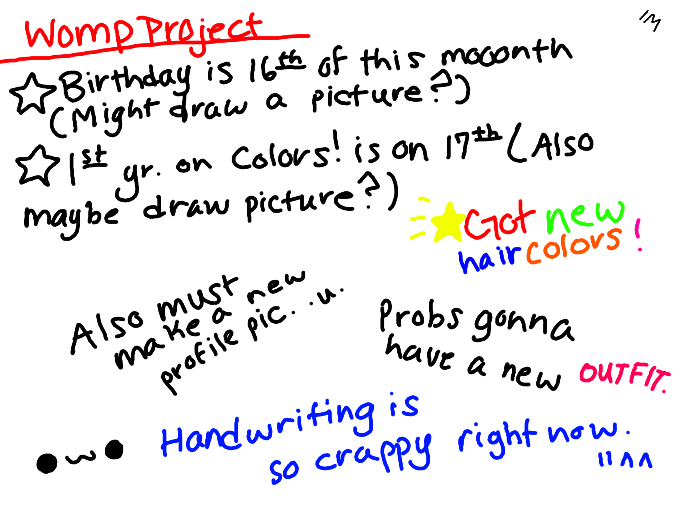 Womp Project
IM
Birthday is 16th of this mooonth
(Might draw a picture?)
1st yr. on Colors! is on 17th (Also
maybe draw picture?)
Got new
hair colors!
Also must
make a new
profile pic. .u.
Probs gonna
have a new OUTFIT.
Handwriting is
so crappy right now.
●w● "^^